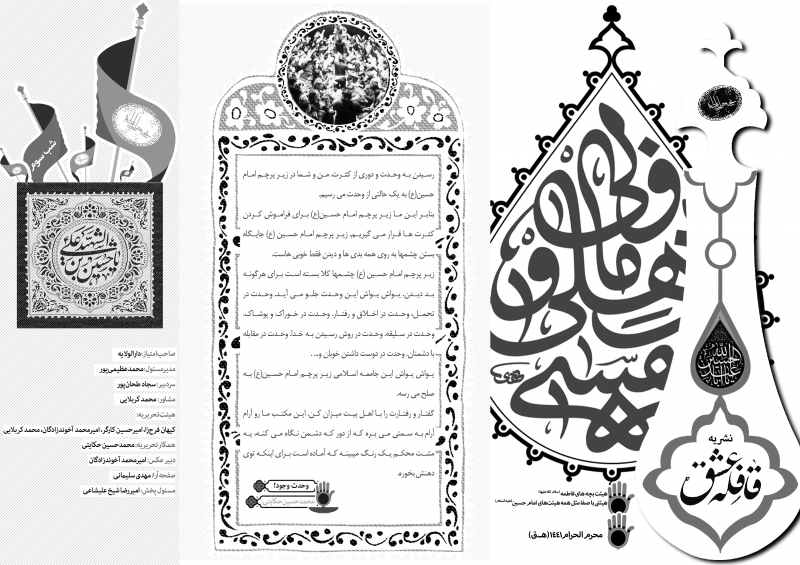 نشریه
قافله عشق
هیئت بچه های فاطمه (سلام الله علیها)
هیئتی با صفا مثل همه هیئت‌های امام حسین (علیه السلام)
محرم الحرام ۱۴۴۱ (هـ.ق)
رسیدن به وحدت و دوری از کثرت، من و شما در زیر پرچم امام
حسین(ع) به یک حالتی از وحدت می رسیم.
بنابر این ما زیر پرچم امام حسین(ع) برای فراموش کردن
کثرت ها قرار می گیریم. زیر پرچم امام حسین (ع) جایگاه
بستن چشمها به روی همه بدی ها و دیدن فقط خوبی هاست.
زیر پرچم امام حسین (ع) چشمها کلا بسته است برای هرگونه
بد دیدن. یواش یواش این وحدت جلو می آید. وحدت در
تحمل، وحدت در اخلاق و رفتار، وحدت در خوراک و پوشاک،
وحدت در سلیقه، وحدت در روش رسیدن به خدا، وحدت در مقابله
با دشمنان، وحدت در دوست داشتن خوبان و...
یواش یواش این جامعه اسلامی زیر پرچم امام حسین(ع) به
صلح می رسه.
گفتار و رفتارت را با اهل بیت میزان کن، این مکتب ما رو آرام
آرام به سمتی می بره که از دور که دشمن نگاه می کنه، یه
مشت محکم یک رنگ میبینه که آماده است برای اینکه توی
دهنش بخوره.
وحدت وجود!
محمدحسین حکایتی
شب سوم
صاحب امتیاز: دارالولایه
مدیرمسئول: محمد عظیمی‌پور
سردبیر: سجاد طحان‌پور
مشاور: محمد کربلایی
هیئت تحریریه:
کیهان فرح‌زا، امیرحسین کارگر، امیرمحمد آخوندزادگان، محمد کربلایی
همکار تحریریه: محمدحسین حکایتی
دبیر عکس: امیرمحمد آخوندزادگان
صفحه آرا: مهدی سلیمانی
مسئول پخش: امیررضا شیخ علیشاعی